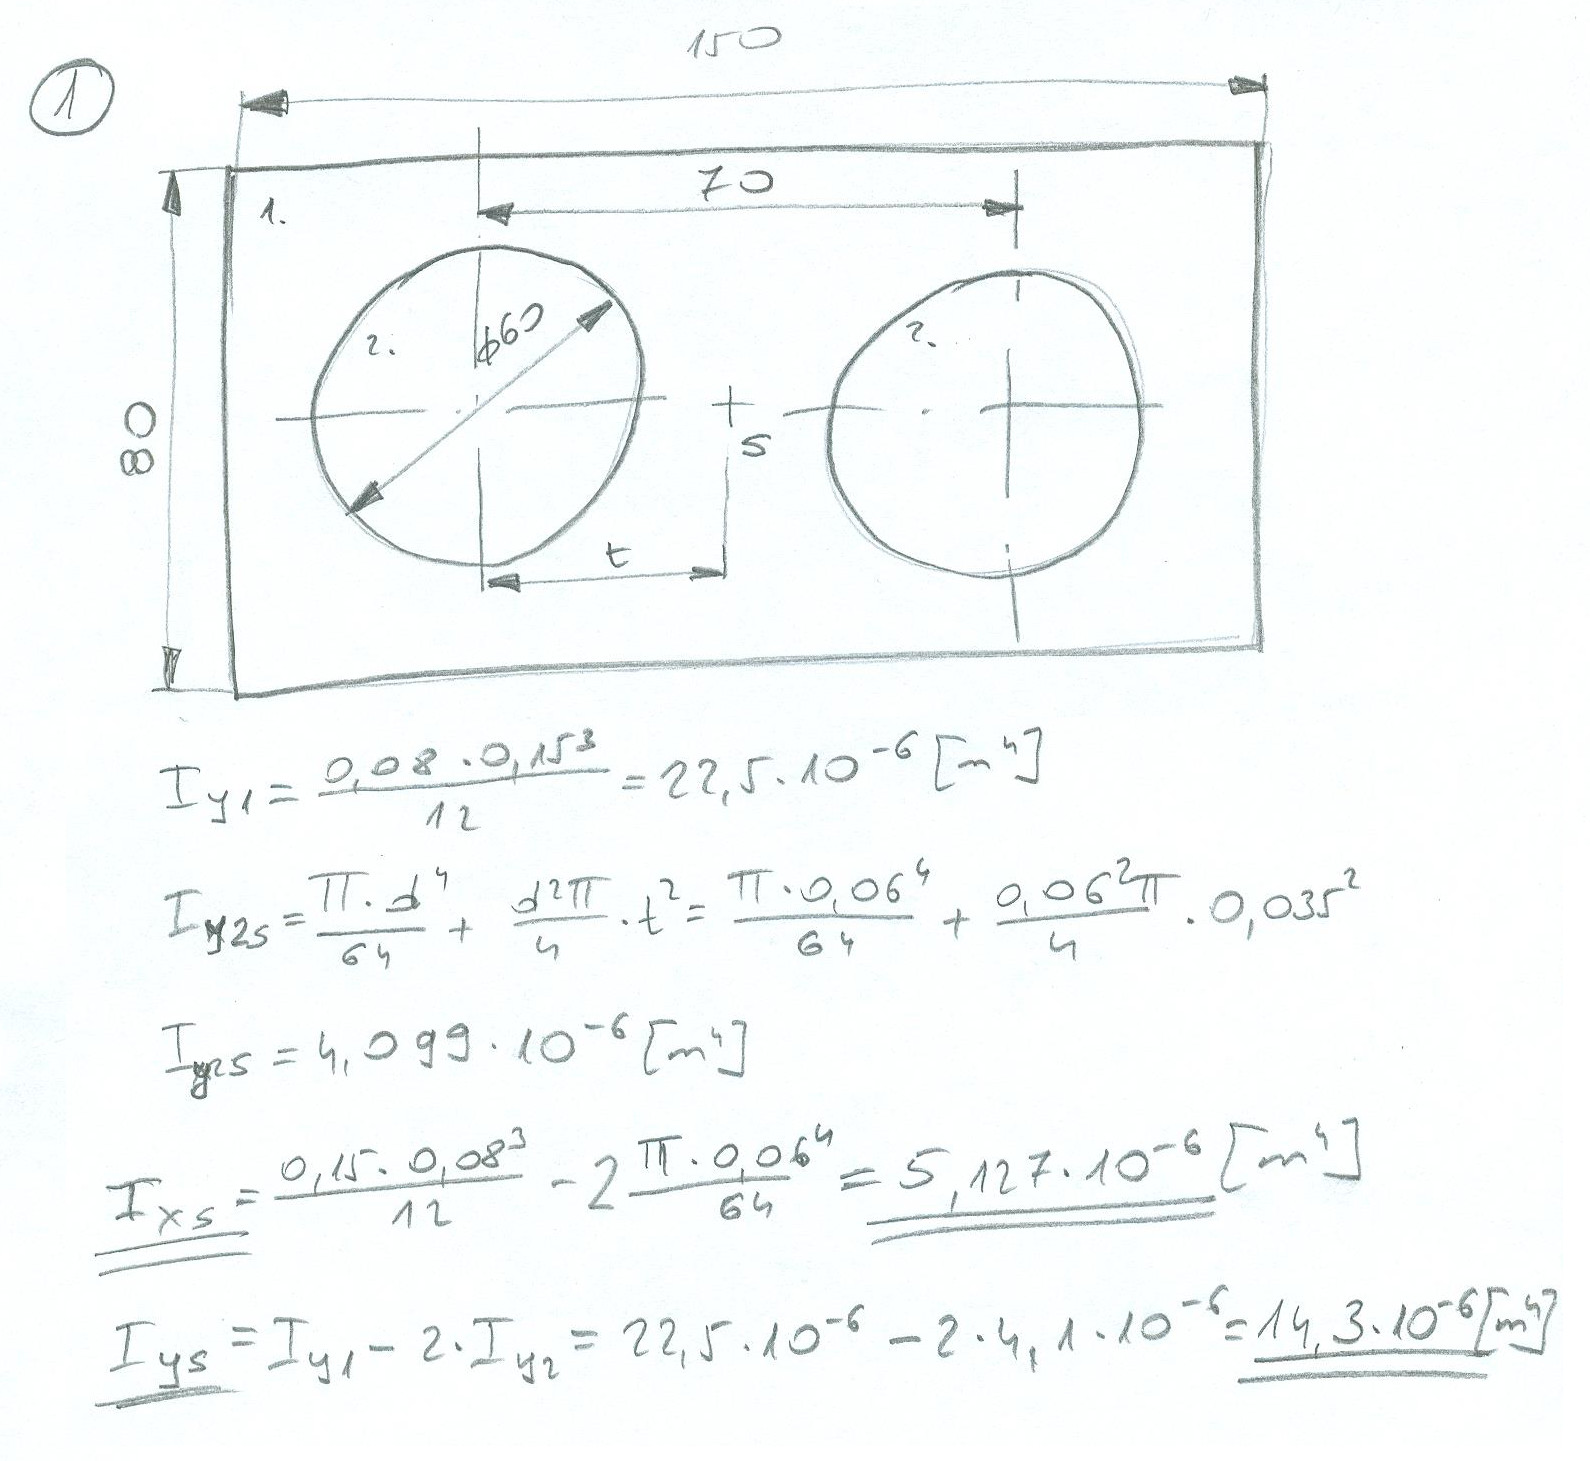 1
150
70
1.
2.
ϕ60
2.
80
S
t
I_y1 = 0,08 · 0,15³ / 12 = 22,5 · 10⁻⁶ [m⁴]
I_y2s = π · d⁴ / 64 + d²π / 4 · t² = π · 0,06⁴ / 64 + 0,06²π / 4 · 0,035²
I_y2s = 4,099 · 10⁻⁶ [m⁴]
I_xs = 0,15 · 0,08³ / 12 - 2 π · 0,06⁴ / 64 = 5,127 · 10⁻⁶ [m⁴]
I_ys = I_y1 - 2 · I_y2 = 22,5 · 10⁻⁶ - 2 · 4,1 · 10⁻⁶ = 14,3 · 10⁻⁶ [m⁴]